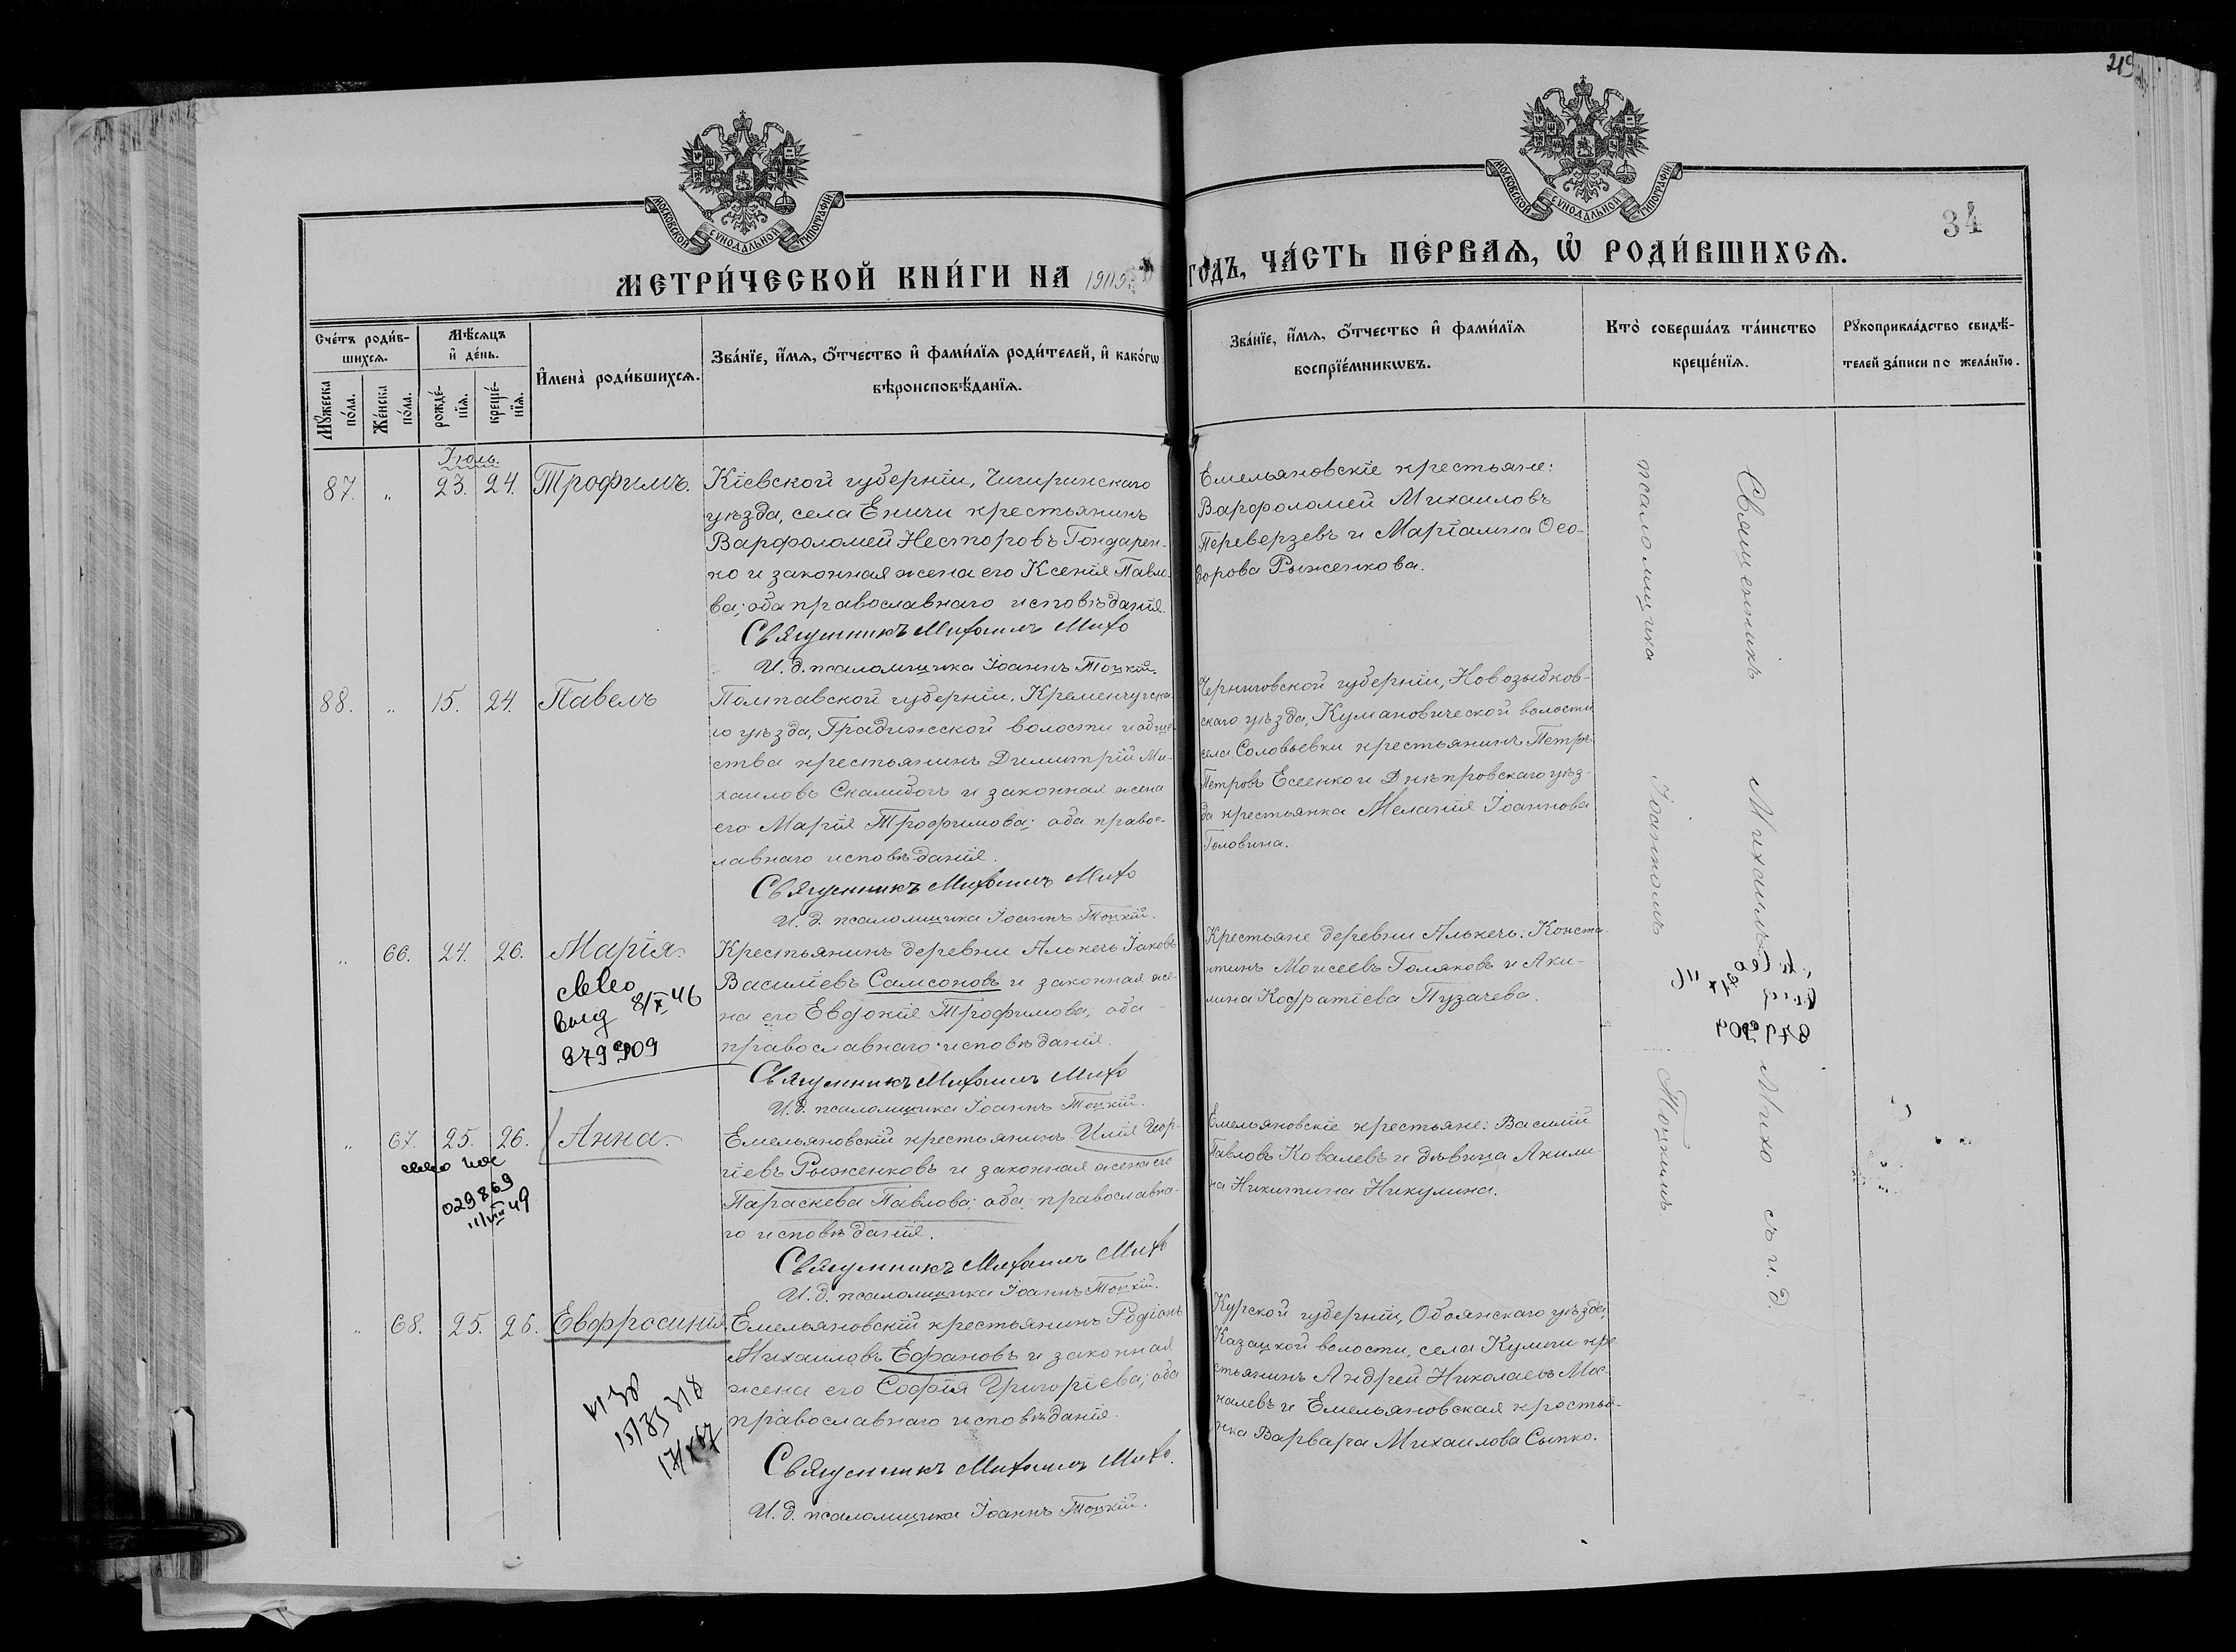 219
МОСКОВСКОЙ СѴНОДАЛЬНОЙ ТИПОГРАФІИ
МОСКОВСКОЙ СѴНОДАЛЬНОЙ ТИПОГРАФІИ
34
МЕТРИ́ЧЕСКОЙ КНИ́ГИ НА 1909 ГОДЪ, ЧА́СТЬ ПЕ́РВАѦ, Ѡ҆ РОДИ́ВШИХСѦ.
Сче́тъ роди́в-
шихсѧ.
Мꙋ́жеска
по́ла.
Же́нска
по́ла.
Мѣ́сѧцъ
и҆ де́нь.
рожде́-
нїѧ.
креще́-
нїѧ.
И҆мена̀ роди́вшихсѧ.
Зва́нїе, и҆́мѧ, ѻ҆́тчество и҆ фами́лїѧ роди́телей, и҆ како́гѡ
вѣроисповѣ́данїѧ.
Зва́нїе, и҆́мѧ, ѻ҆́тчество и҆ фами́лїѧ
воспрїе́мникѡвъ.
Кто̀ соверша́лъ та́инство
креще́нїѧ.
Рꙋкоприкла́дство свидѣ́-
телей за́писи по жела́нїю.
Іюль.
87. „ 23. 24. Трофимъ.
Кіевской губерніи, Чигиринскаго
уѣзда, села Еничи крестьянинъ
Варфоломей Несторовъ Гондарен-
ко и законная жена его Ксенія Павло-
ва; оба православнаго исповѣданія.
Священникъ Михаилъ Михо
И. д. псаломщика Іоаннъ Тоцкій.
Емельяновскіе крестьяне:
Варфоломей Михаиловъ
Переверзевъ и Маріамна Ѳео-
дорова Рыженкова.
88. „ 15. 24. Павелъ
Полтавской губерніи, Кременчугска-
го уѣзда, Градижской волости и обще-
ства крестьянинъ Димитрій Ми-
хаиловъ Скалидогъ и законная жена
его Марія Трофимова; оба правос-
лавнаго исповѣданія.
Священникъ Михаилъ Михо
И. д. псаломщика Іоаннъ Тоцкій.
Черниговской губерніи, Новозыбков-
скаго уѣзда, Кумановической волости
села Соловьевки крестьянинъ Петръ
Петровъ Есеенко и Днѣпровскаго уѣз-
да крестьянка Меланія Іоаннова
Головина.
„ 66. 24. 26. Марія.
Крестьянинъ деревни Алькечь Іаковъ
Василіевъ Самсоновъ и законная же-
на его Евдокія Трофимова; оба
православнаго исповѣданія.
Священникъ Михаилъ Михо
И. д. псаломщика Іоаннъ Тоцкій.
Крестьяне деревни Алькечь: Конста-
нтинъ Моисеевъ Голяковъ и Аки-
лина Кодратіева Пузачева.
8/X 46
879909
„ 67. 25. 26. Анна.
Емельяновскій крестьянинъ Илія Геор-
гіевъ Рыженковъ и законная жена его
Параскева Павлова; оба православна-
го исповѣданія.
Священникъ Михаилъ Михо
И. д. псаломщика Іоаннъ Тоцкій.
Емельяновскіе крестьяне: Василій
Павловъ Ковалевъ и дѣвица Акили-
на Никитина Никулина.
029869
11/VIII 49
„ 68. 25. 26. Евфросинія
Емельяновскій крестьянинъ Родіонъ
Михаиловъ Ефановъ и законная
жена его Софія Григоріева; оба
православнаго исповѣданія.
Священникъ Михаилъ Михо.
И. д. псаломщика Іоаннъ Тоцкій.
Курской губерніи, Обоянскаго уѣзда,
Казацкой волости, села Кулиги кре-
стьянинъ Андрей Николаевъ Мос-
калевъ и Емельяновская крестья-
нка Варвара Михаилова Сыпко.
Священникъ Михаилъ Михо съ и. д.
псаломщика Іоанномъ Тоцкимъ.